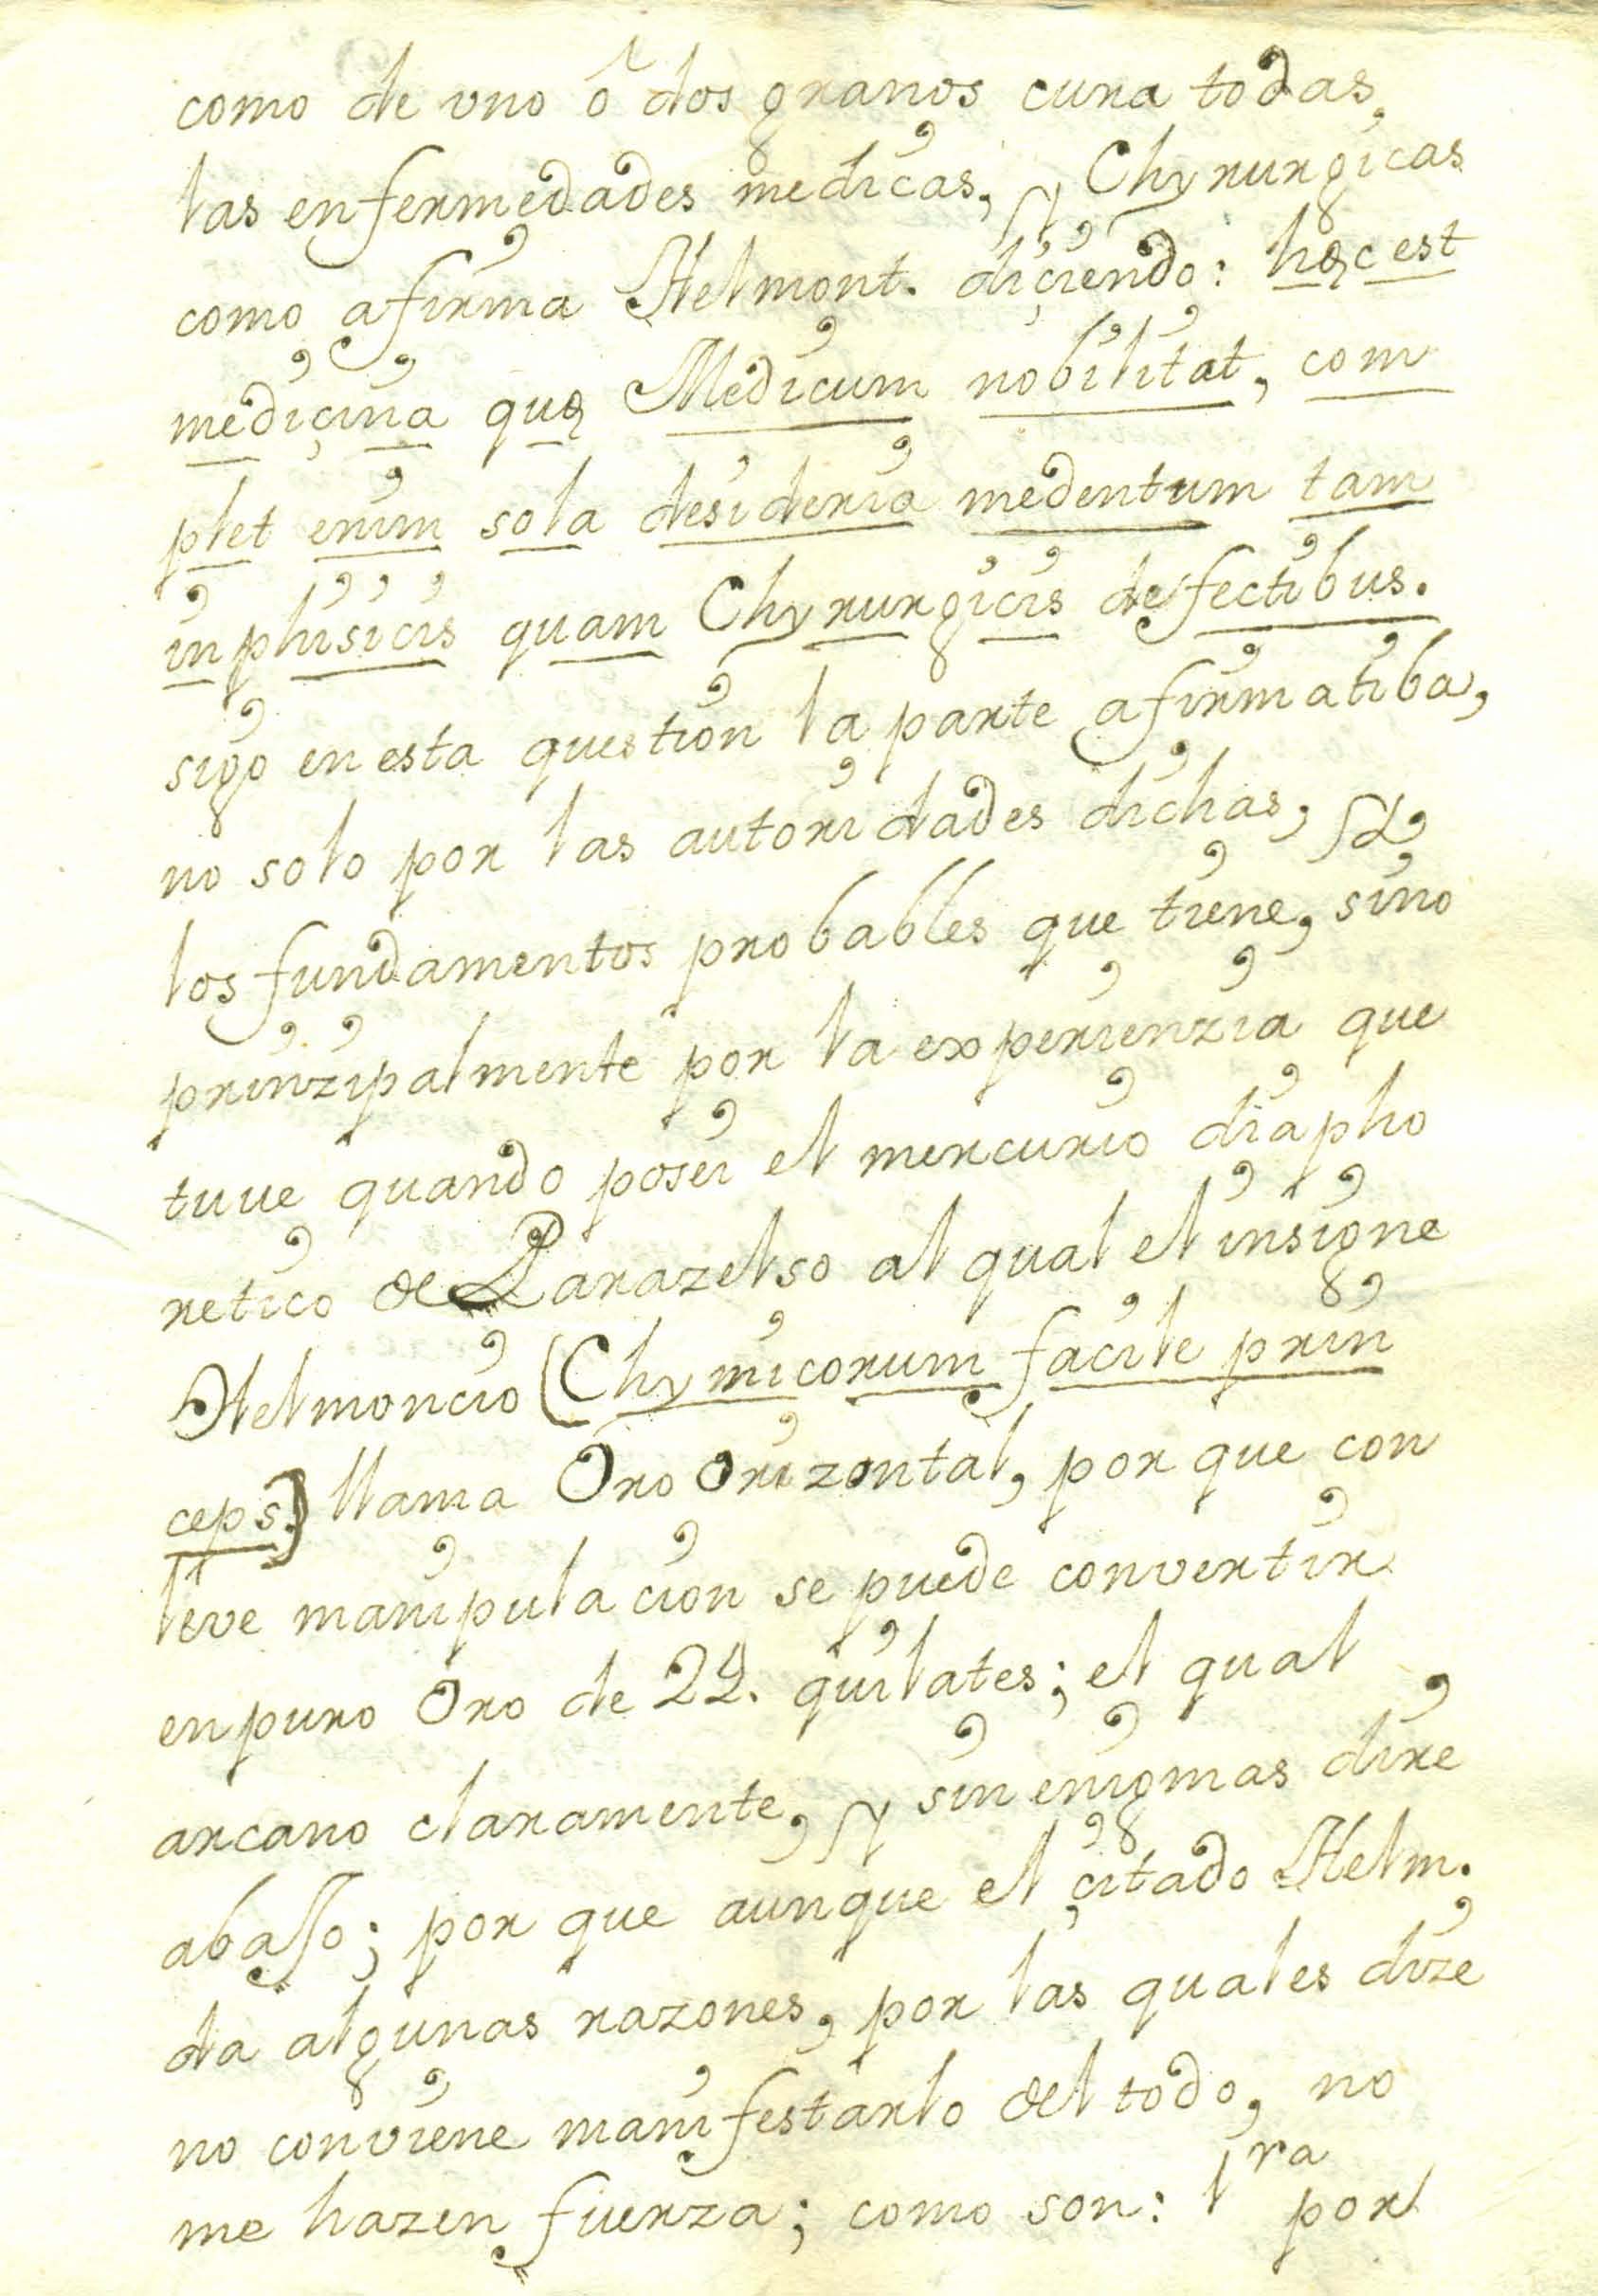 como de vno ô dos granos cura todas
las enfermedades medicas, y Chyrurgicas
como afirma Helmont. diçiendo: hęc est
mediçina quę Medicum nobilitat, com
plet enim sola desideria medentum tam
in phisicis quam Chyrurgicis defectibus.
sigo en esta question la parte afirmatiba,
no solo por las autoridades dichas, y
los fundamentos probables que tiene, sino
prinzipalmente por la experienzia que
tuue quando posei el mercurio diapho
retico de Parazelso al qual el insigne
Helmoncio (Chymicorum facile prin
ceps.) llama Oro Orizontal, por que con
leve manipulacion se puede convertir
en puro Oro de 24. quilates; el qual
arcano claramente, y sin enigmas dire
abaJo; por que aunque el çitado Helm.
da algunas razones, por las quales dize
no conviene manifestarlo del todo, no
me hazen fuerza; como son: 1ra por